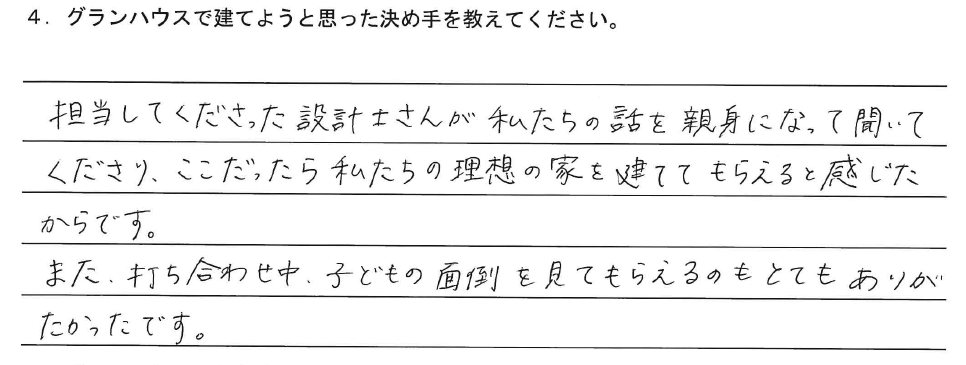 4. グランハウスで建てようと思った決め手を教えてください。
担当してくださった設計士さんが私たちの話を親身になって聞いて
くださり、ここだったら私たちの理想の家を建ててもらえると感じた
からです。
また、打ち合わせ中、子どもの面倒を見てもらえるのもとてもありが
たかったです。